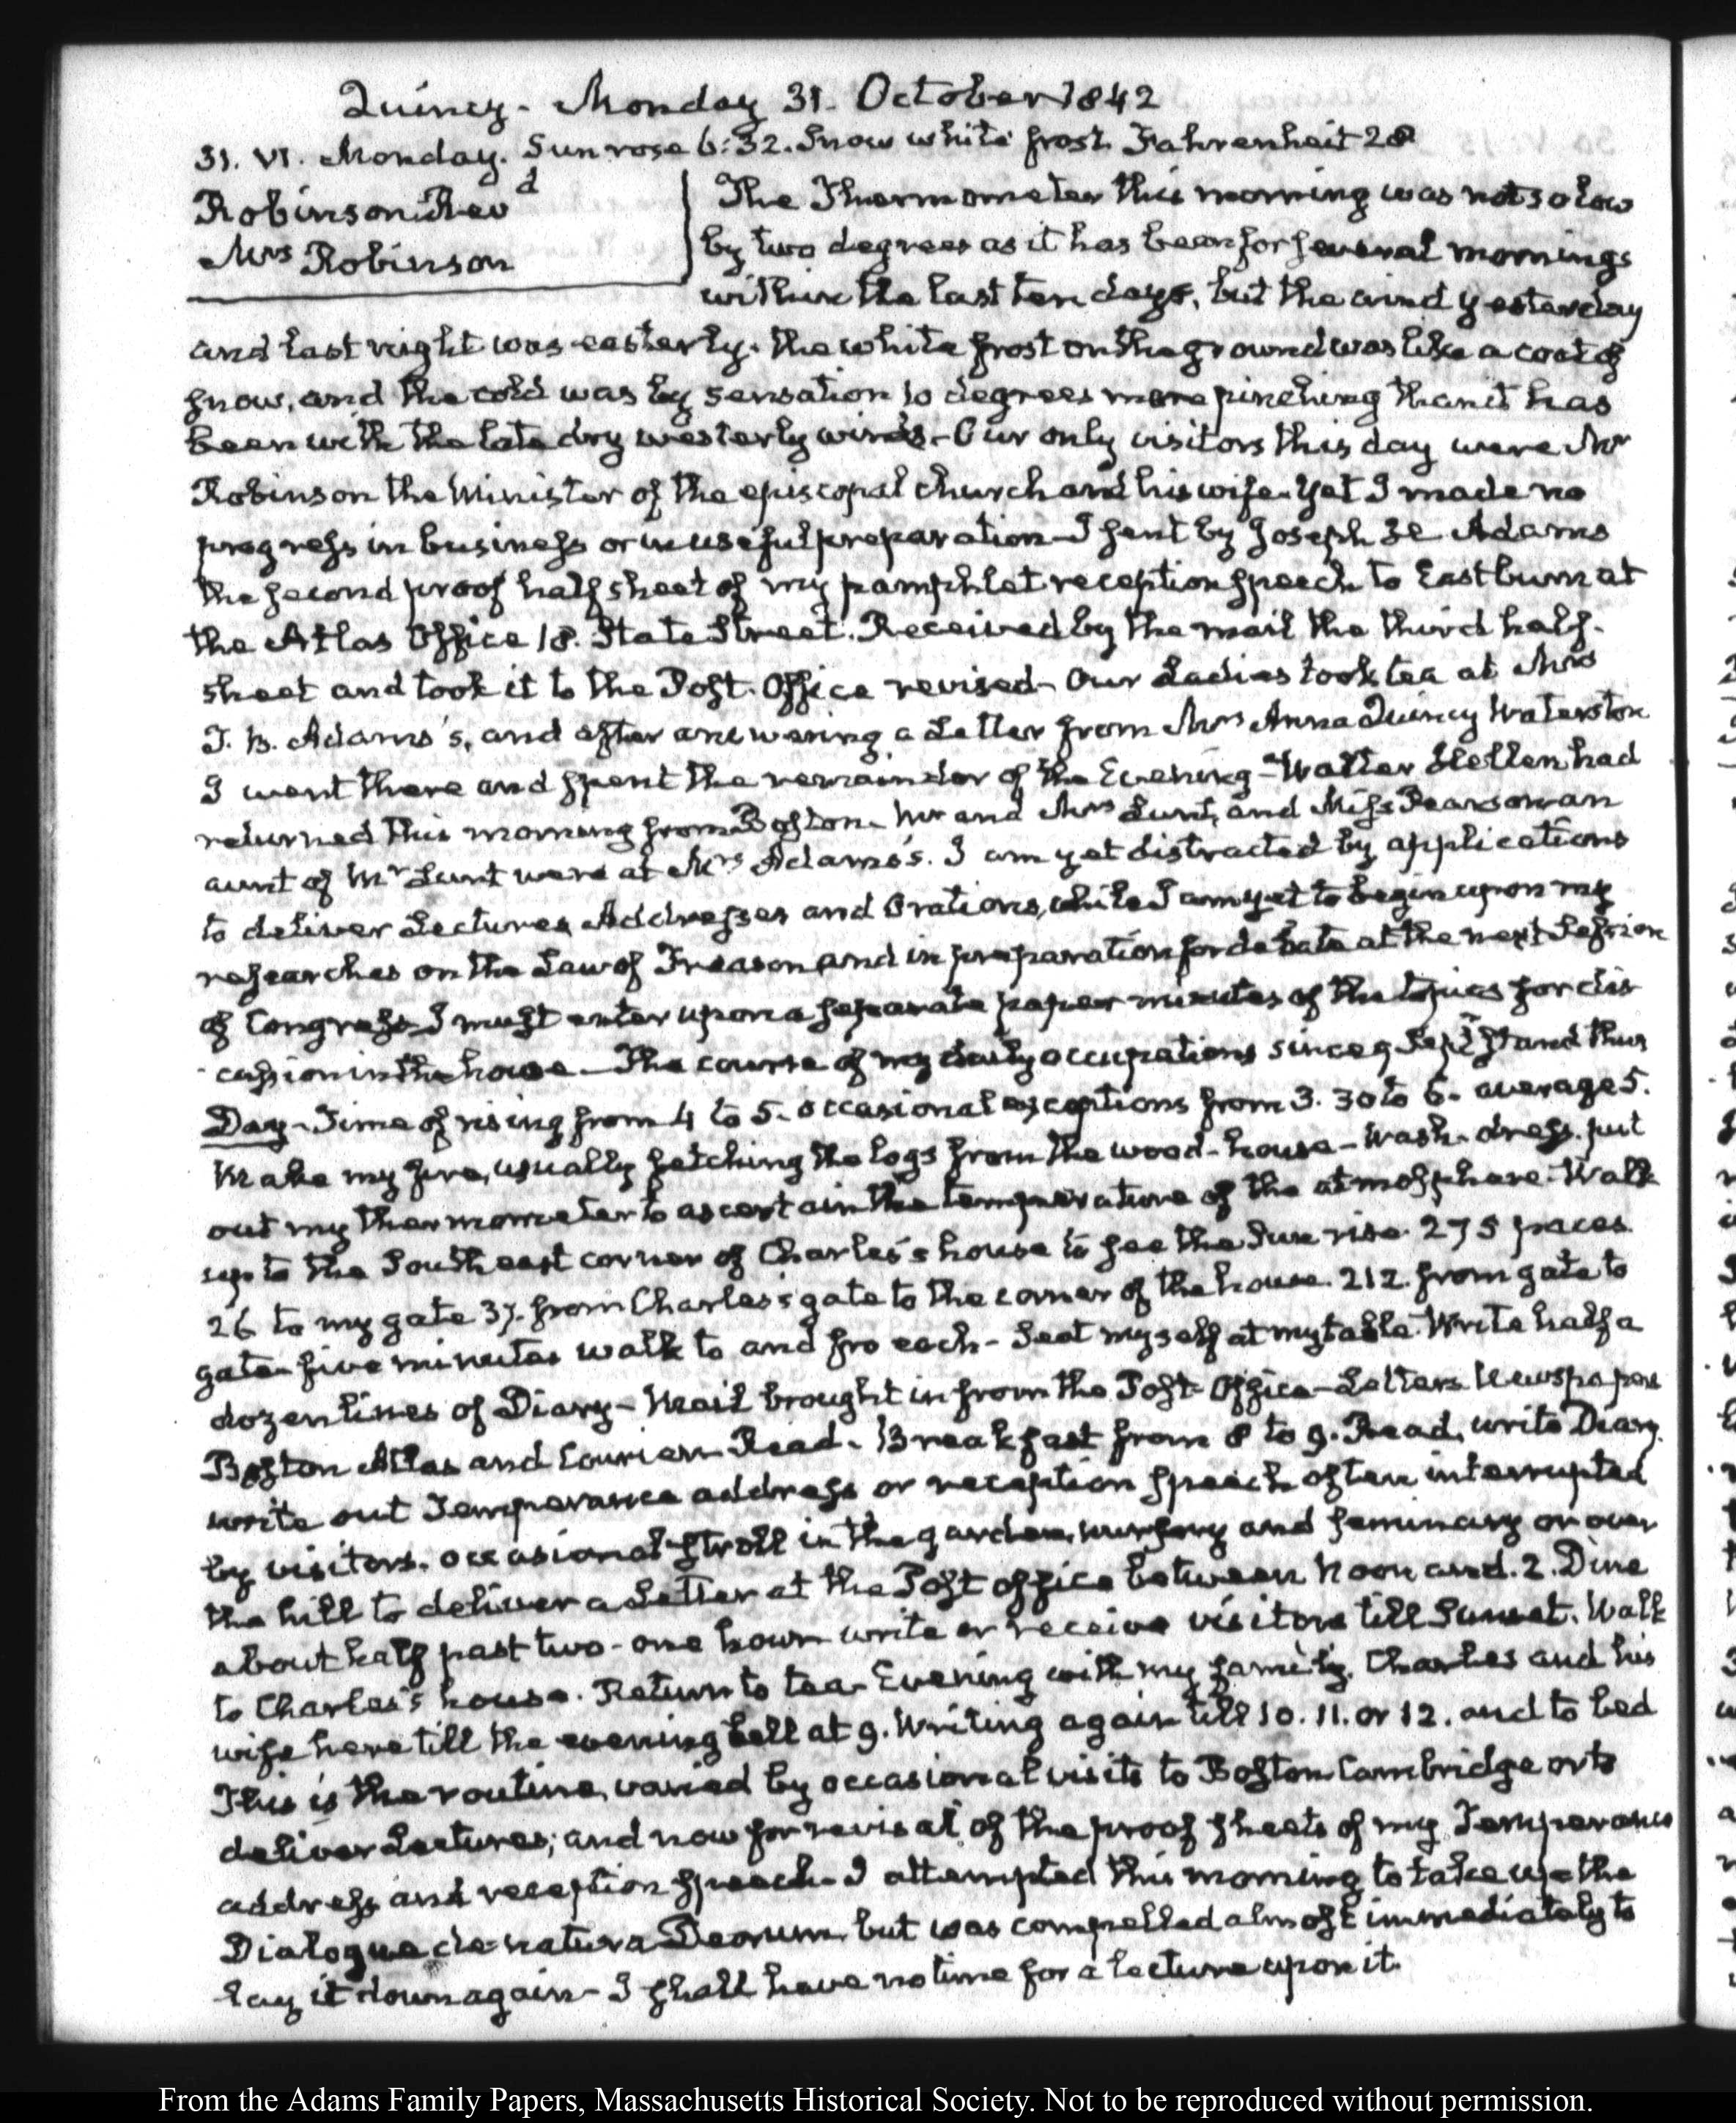 Quincy - Monday 31. October 1842
31. VI. Monday. Sun rose 6:32. Snow white frost. Fahrenheit 28
Robinson Revd
Mrs Robinson
The Thermometer this morning was not so low
by two degrees as it has been for several mornings
within the last ten days, but the wind yesterday
and last night was easterly. the white frost on the ground was like a coat of
snow, and the cold was by sensation 10 degrees more pinching than it has
been with the late dry westerly winds - Our only visitors this day were Mr
Robinson the Minister of the episcopal church and his wife. Yet I made no
progress in business or in useful preparation - I sent by Joseph H Adams
the second proof half sheet of my pamphlet reception speech to Eastburn at
the Atlas Office 18. State Street. Received by the mail the third half-
sheet and took it to the Post-Office revised - Our Ladies took tea at Mrs
T. B. Adams's, and after answering a Letter from Mrs Anna Quincy Waterston
I went there and spent the remainder of the Evening - Walter Hellen had
returned this morning from Boston. Mr and Mrs Lunt, and Miss Pearson an
aunt of Mr Lunt were at Mrs Adams's. I am yet distracted by applications
to deliver Lectures Addresses and Orations, while I am yet to begin upon my
researches on the Law of Treason, and in preparation for debate at the next Session
of Congress - I must enter upon a separate paper minutes of the topics for dis
-cussion in the house - The course of my daily occupations since 9 Septr stand thus
Day - Time of rising from 4 to 5. occasional exceptions from 3.30 to 6. average 5.
Make my fire, usually fetching the logs from the wood-house - Wash. dress. put
out my thermometer to ascertain the temperature of the atmosphere. Walk
up to the Southeast corner of Charles's house to see the Sun rise. 275 paces
26 to my gate 37. from Charles's gate to the corner of the house. 212. from gate to
gate - five minutes walk to and fro each - Seat myself at my table. Write half a
dozen lines of Diary - Mail brought in from the Post-Office - Letters Newspapers
Boston Atlas and Courier - Read. Breakfast from 8 to 9. Read, write Diary.
write out Temperance address or reception speech often interrupted
by visitors. occasional stroll in the garden, nursery and seminary or over
the hill to deliver a Letter at the Post office between Noon and 2. Dine
about half past two - one hour write or receive visitors till Sunset. Walk
to Charles's house. Return to tea - Evening with my family. Charles and his
wife here till the evening bell at 9. Writing again till 10. 11. or 12. and to bed
This is the routine, varied by occasional visits to Boston Cambridge or to
deliver Lectures; and now for revisal of the proof sheets of my Temperance
address and reception speech - I attempted this morning to take up the
Dialogue de natura Deorum, but was compelled almost immediately to
lay it down again - I shall have no time for a lecture upon it.
From the Adams Family Papers, Massachusetts Historical Society. Not to be reproduced without permission.